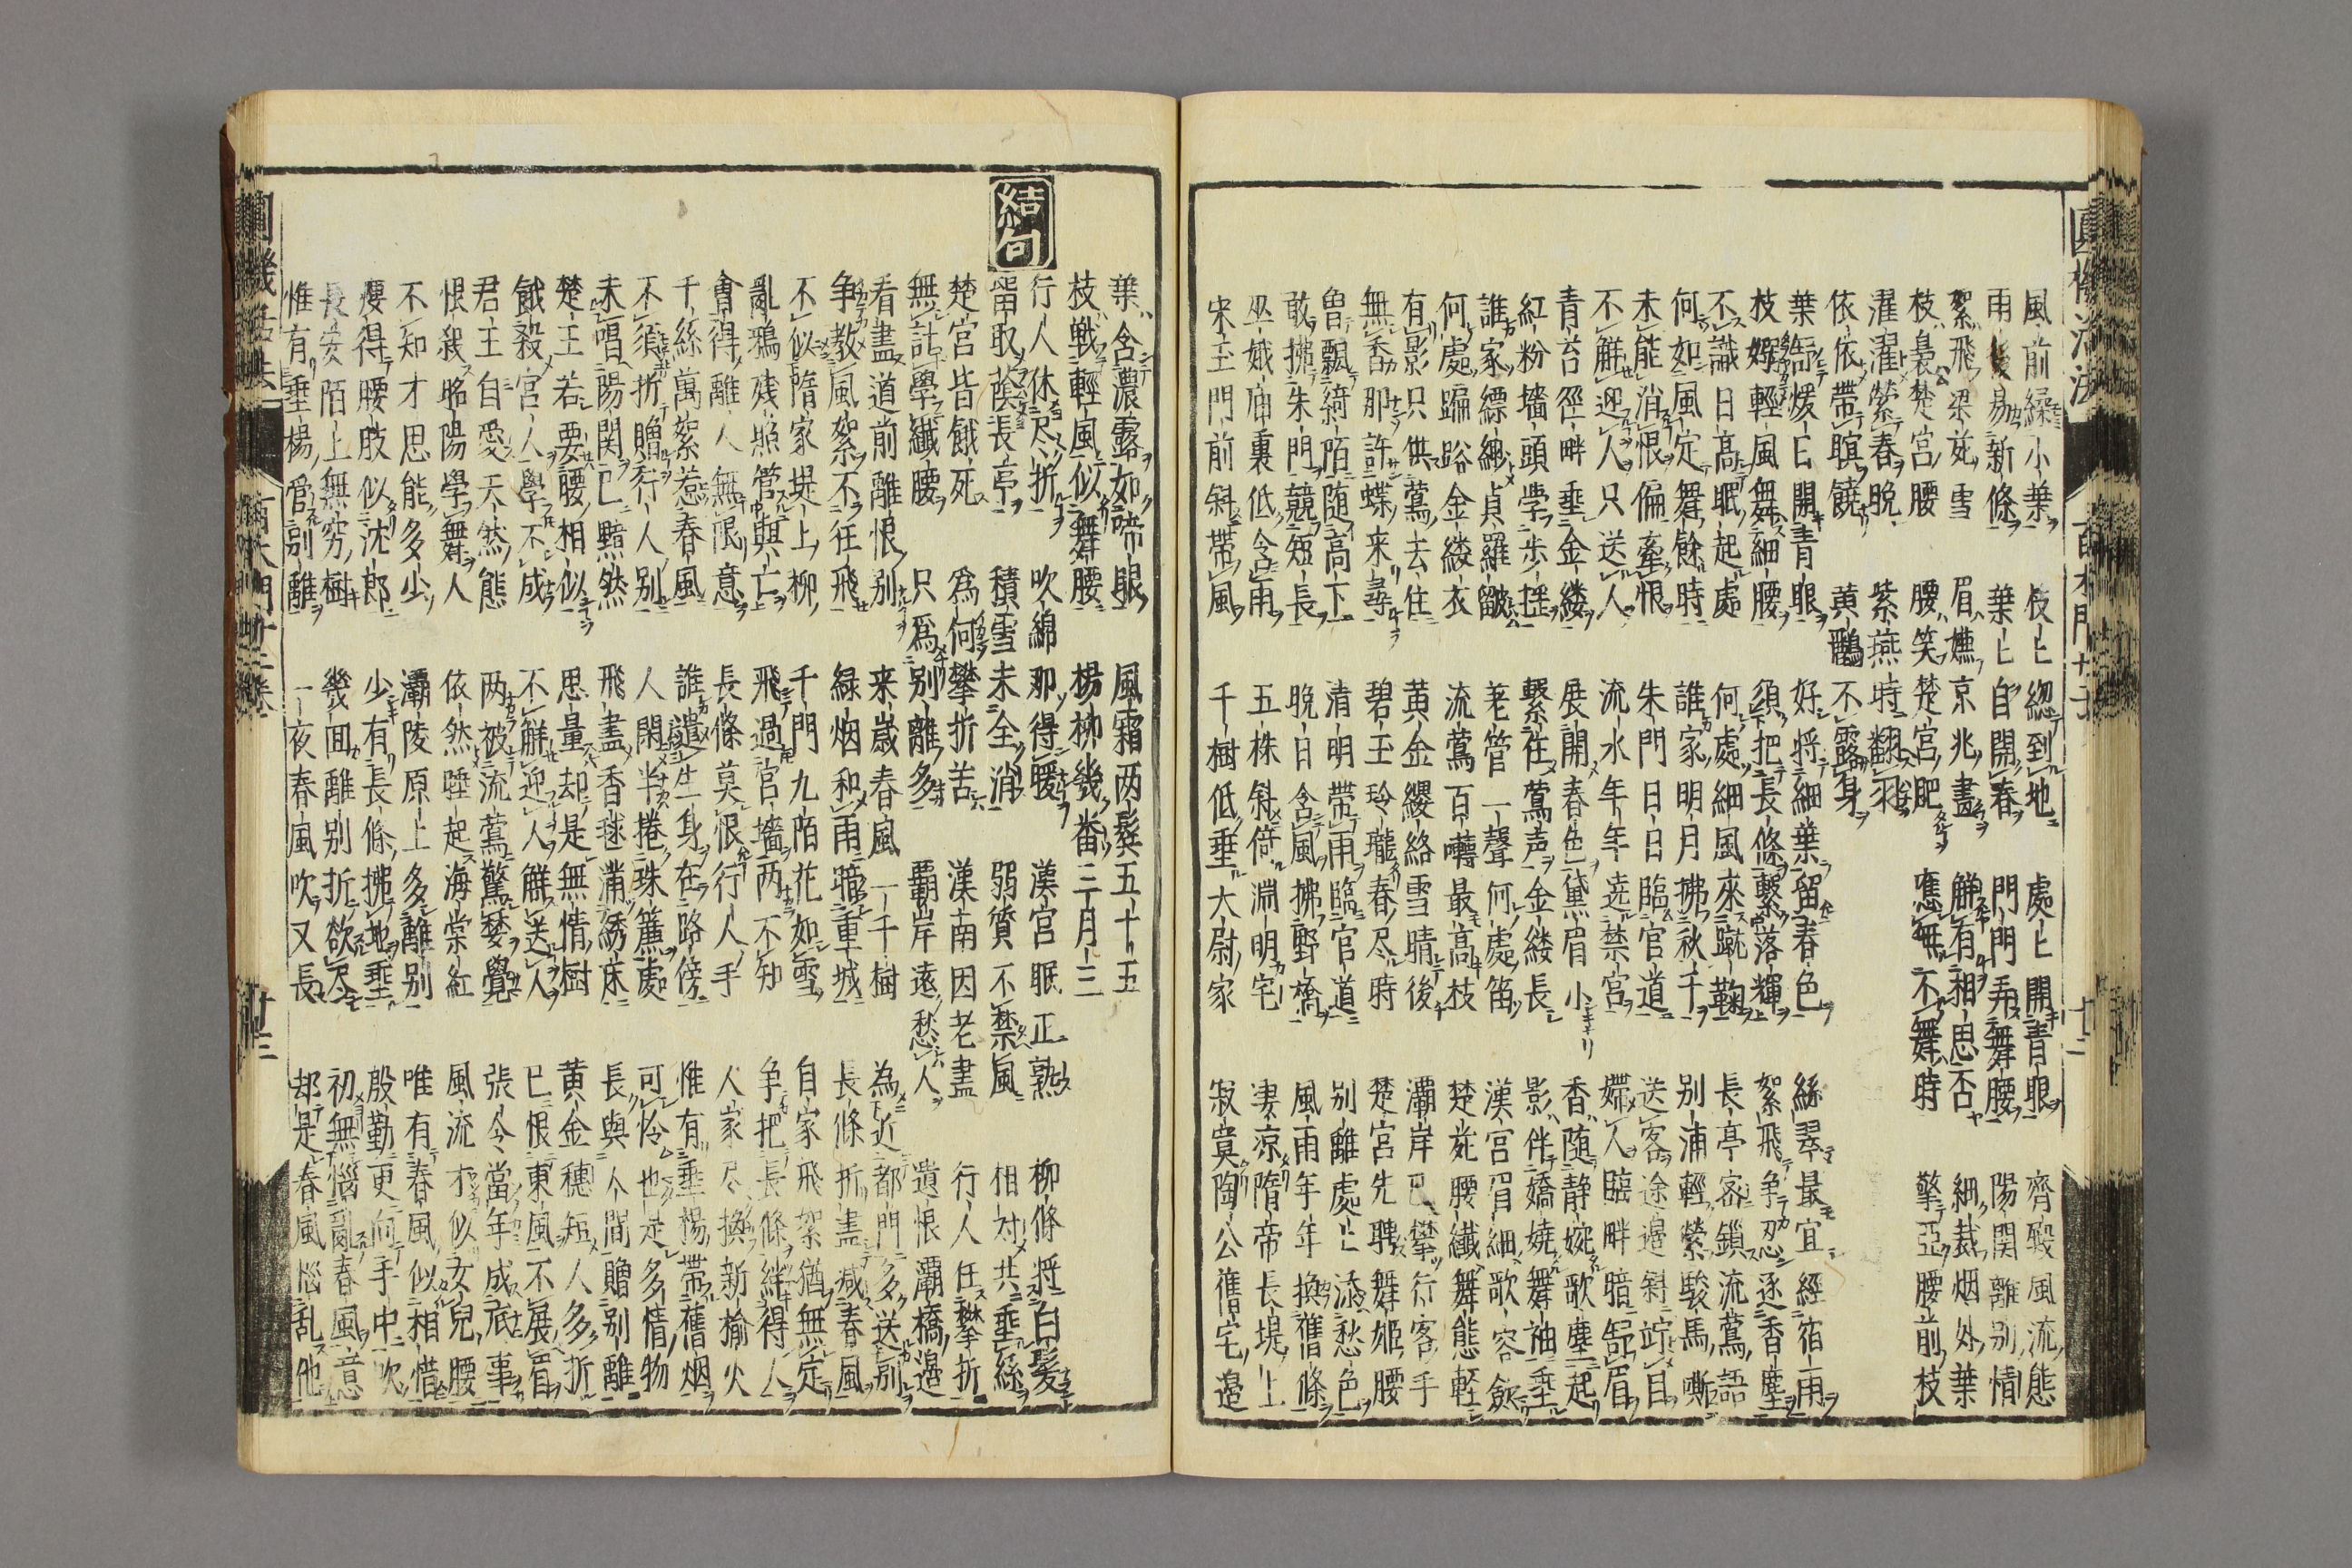 風前繰小葉　枝上緫到地　處上開青眼　齊殿風流態
雨後易新條　葉上自開春　門門弄舞腰　陽関離別情
絮飛梁苑雪　眉嫵京兆畫　觧有相思否　細裁烟外葉
枝裊楚宮腰　腰笑楚宮肥　應無不舞時　擎亞腰前枝
濯濯縈春脫　紫燕時翻羽
依依帶暝饒　黄鸝不露身
葉舒煖日開青眼　好將細葉留春色　絲翠最宜經宿雨
枝嫋輕風舞細腰　須把長條繫落輝　絮飛争忍逐香塵
不識日高眠起處　何處細風來蹴鞠　長亭客鎖流鶯語
何如風定舞餘時　誰家明月拂秋千　別浦輕縈駿馬嘶
未能消恨偏牽恨　朱門日日臨官道　送客途邊斜竚目
不觧迎人只送人　流水年年遶禁宮　婦人臨畔暗舒眉
青苔徑畔垂金縷　展開春色黛眉小　香随静婉歌塵起
紅粉墻頭學步揺　繫住鶯声金縷長　影伴嬌嬈舞袖垂
誰家縹緲貞羅皺　老管一聲何處笛　漢宮眉細歌容斂
何處蹁跹金縷衣　流鶯百囀最高枝　楚苑腰纖舞態軽
有影只供鶯去住　黄金纓絡雪晴後　灞岸已攀行客手
無香那許蝶来尋　碧玉玲瓏春尽時　楚宮先聘舞姬腰
曾飄綺陌随高下　清明帶雨臨官道　别離處上添愁色
敢拂朱門競短長　晩日含風拂野橋　風雨年年換舊條
巫娥庙裏低含雨　五株斜倚淵明宅　凄凉隋帝長堤上
宋玉門前斜帶風　千樹低垂大尉家　寂寞陶公舊宅邉
葉含濃露如啼眼　風霜两鬂五十五
枝戦輕風似舞腰　楊柳幾番三月三
結句
行人休尽折　吹綿那得暖　漢宮眠正熟　柳條將白髪
畱取蔭長亭　積雪未全消　弱質不禁風　相対共垂絲
楚宮皆餓死　爲何攀折苦　漢南因老盡　行人任攀折
無計學纖腰　只爲别離多　覇岸遠愁人　遺恨灞橋邉
看盡道前離恨别　来歳春風一千樹　為近都門多送别
争教風絮不狂飛　緑烟和雨暗重城　長條折盡減春風
不似隋家堤上柳　千門九陌花如雪　自家飛絮猶無定
亂鴉殘照管興亡　飛過官墻两不知　争把長條絆得人
會得離人無限意　長條莫恨行人手　人家尽換新榆火
千絲萬絮惹春風　誰遣生身在路傍　惟有垂楊帶舊烟
不須折贈行人别　人閑半捲珠簾處　可怜也是多情物
未唱陽関已黯然　飛盡香毬滿綉床　長與人間贈别離
楚王若要腰相似　思量却是無情樹　黄金穗短人多折
餓殺宮人學不成　不觧迎人觧送人　已恨東風不展眉
君王自愛天然態　两被流鶯驚夢覺　張今當年成底事
恨殺昭陽學舞人　依然睡起海棠紅　風流才似女兒腰
不知才思能多少　灞陵原上多離别　唯有春風似相惜
瘦得腰肢似沈郎　少有長條拂地垂　殷勤更向手中吹
長安陌上無窮樹　幾回離别折欲尽　初無惱亂春風意
惟有垂楊管别離　一夜春風吹又長　却是春風惱乱他